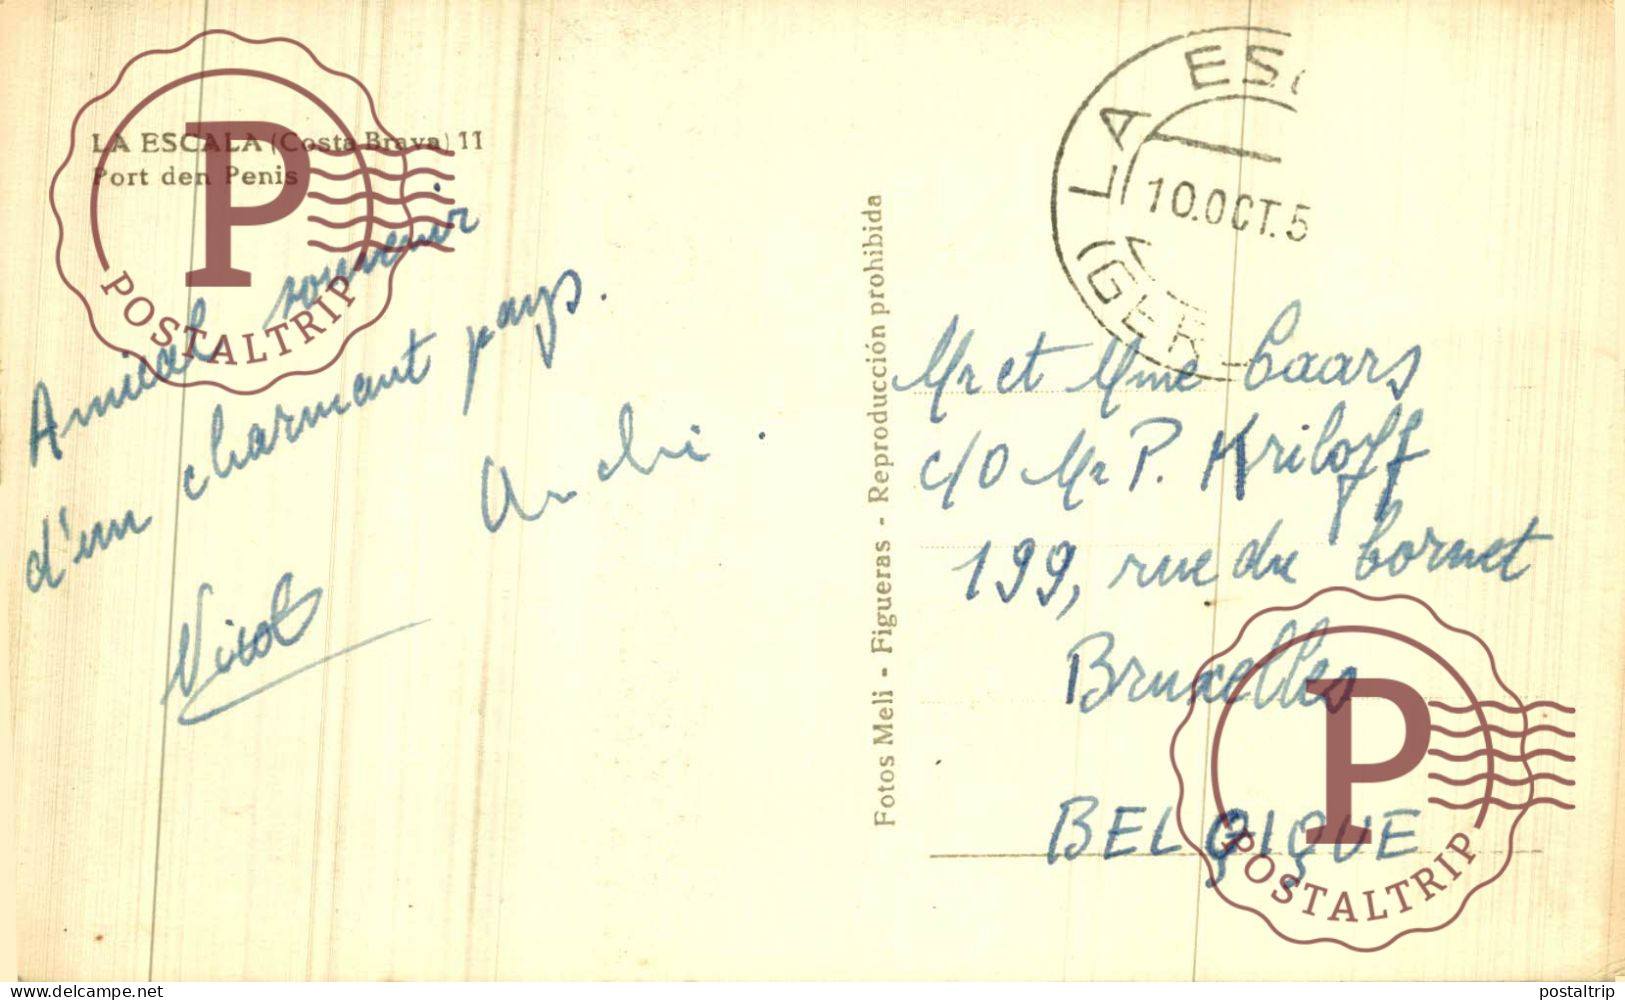 LA ESCALA (Costa Brava) 11
Port den Penis
Amical souvenir
d'un charmant pays.
Fotos Meli - Figueras - Reproducción prohibida
LA ESC
10.OCT.5
(GER
Mr et Mme Caars
c/o Mr P. Kriloff
199, rue du Cornet
Bruxelles
BELGIQUE
P
POSTALTRIP
P
POSTALTRIP
www.delcampe.net
postaltrip